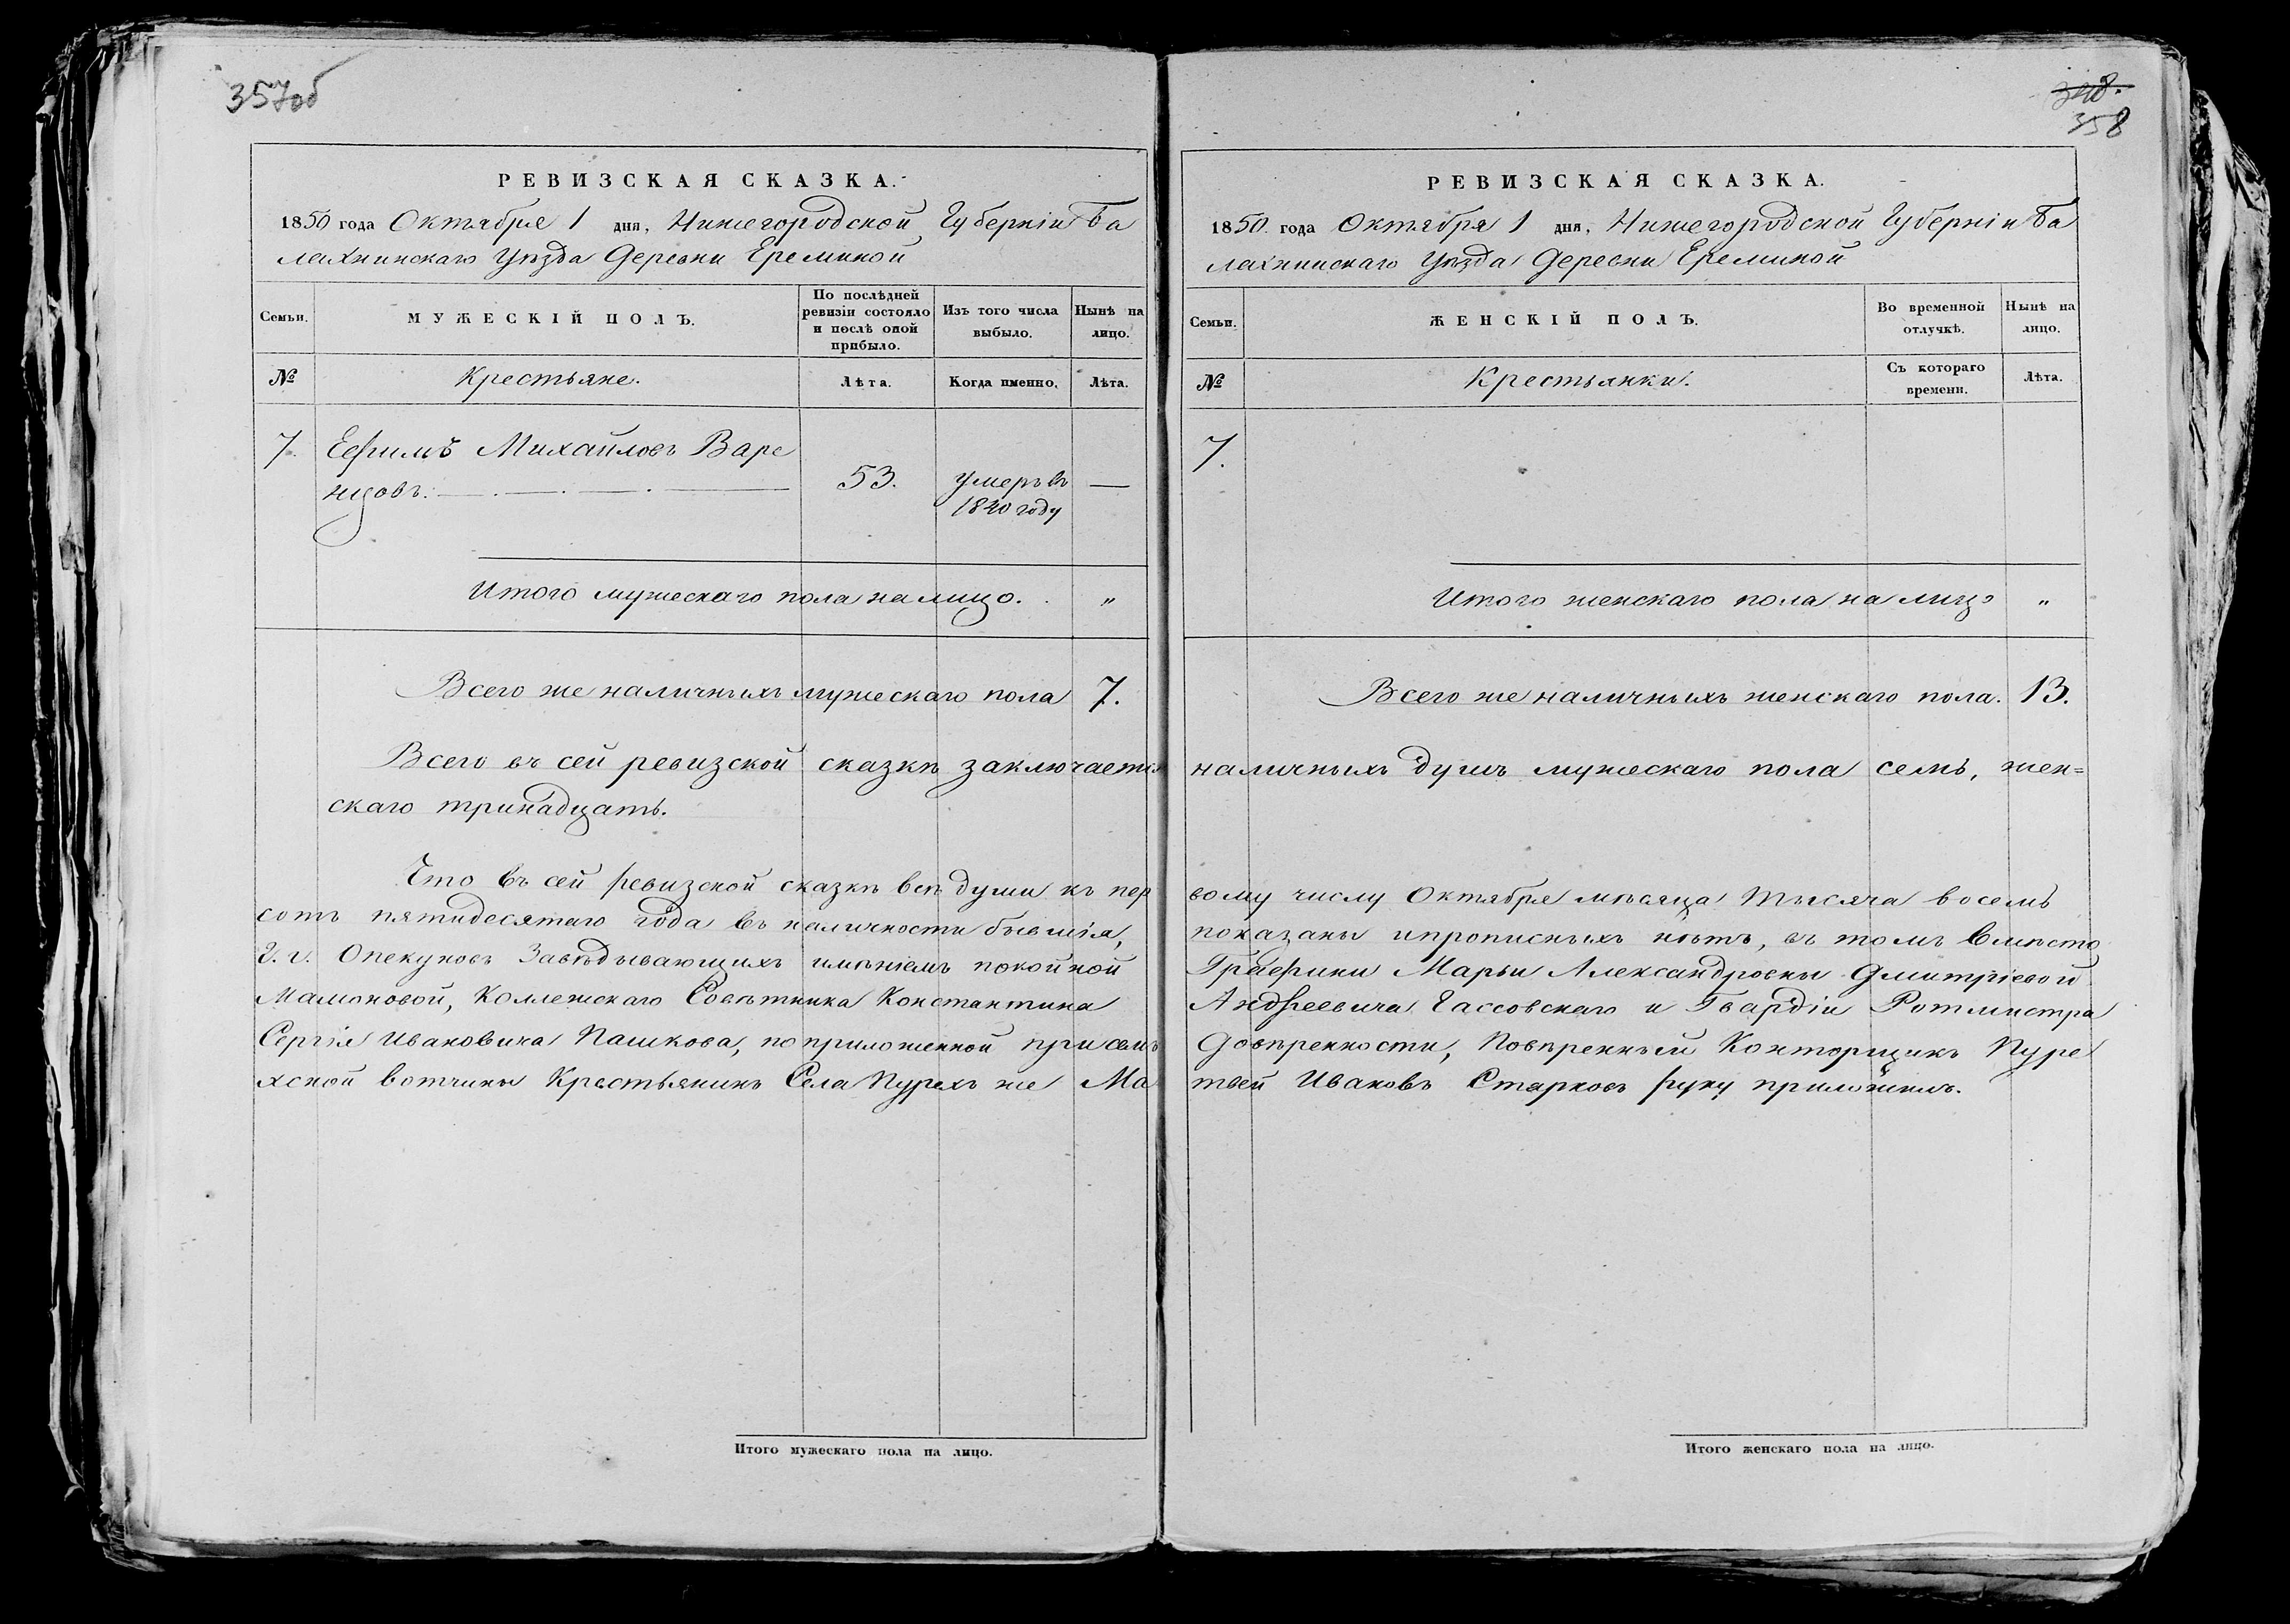 357об
РЕВИЗСКАЯ СКАЗКА.
1850 года Октября 1 дня, Нижегородской Губерніи Ба
лахнинскаго Уѣзда Деревни Ереминой
Семьи.
МУЖЕСКІЙ ПОЛЪ.
По послѣдней
ревизіи состояло
и послѣ оной
прибыло.
Изъ того числа
выбыло.
Нынѣ на
лицо.
№
Крестьяне.
Лѣта.
Когда именно.
Лѣта.
7. Ефимъ Михайловъ Варе
нцовъ. 53. умеръ въ —
1840 году
Итого мужескаго пола на лицо. . "
Всего же наличныхъ мужескаго пола 7.
Всего въ сей ревизской сказкѣ заключается
скаго тринадцать.
Что въ сей ревизской сказкѣ всѣ души къ пер
сотъ пятидесятаго года въ наличности бывшія,
Г. г. Опекуновъ Завѣдывающихъ имѣніемъ покойной
Мамоновой, Коллежскаго Совѣтника Константина
Сергія Ивановича Пашкова, по приложенной при семъ
хской вотчины Крестьянинъ Села Пурехъ же Ма
Итого мужескаго пола на лицо.
348.
358
РЕВИЗСКАЯ СКАЗКА.
1850. года Октября 1 дня, Нижегородской Губерніи Ба
лахнинскаго Уѣзда Деревни Ереминой
Семьи.
ЖЕНСКІЙ ПОЛЪ.
Во временной
отлучкѣ.
Нынѣ на
лицо.
№
Крестьянки.
Съ котораго
времени.
Лѣта.
7.
Итого женскаго пола на лицо "
Всего же наличныхъ женскаго пола. 13.
наличныхъ душъ мужескаго пола семь, жен=
вому числу Октября мѣсяца тысяча восемь
показаны и прописныхъ нѣтъ, въ томъ вмѣсто
Графини Марьи Александровны Дмитріевой
Андреевича Гассовскаго и Гвардіи Ротмистра
Довѣренности, Повѣренный Конторщикъ Пуре
твей Ивановъ Старковъ руку приложилъ.
Итого женскаго пола на лицо.